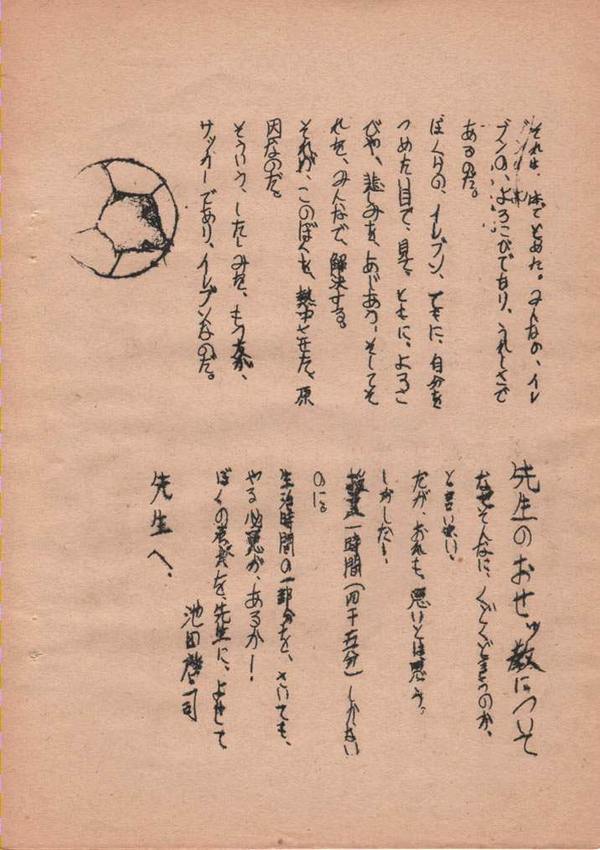 それは、体でとめた。みんなの、イレ
ブンの、よろこびであり、うれしさで
あるのだ。
ぼくらの、イレブン、ともに、自分を
つめたい目で、見、ともに、よろこ
びや、悲しみを、あじあう、そしてそ
れを、みんなで、解決する。
それが、このぼくを、熱中させた、原
因なのだ。
そういう、したしみを、もつ友が、
サッカーであり、イレブンなのだ。
先生のおせッ教について
なぜそんなに、くどくど言うのか、
と言い使い、
だが、おれも、悪いとは思う。
しかしだ！
授業一時間（四十五分）しかない
のに。
生活時間の一部分を、さいても、
やる必要が、あるか！
ぼくの考えを、先生に、よせて
先生へ、
池田 司